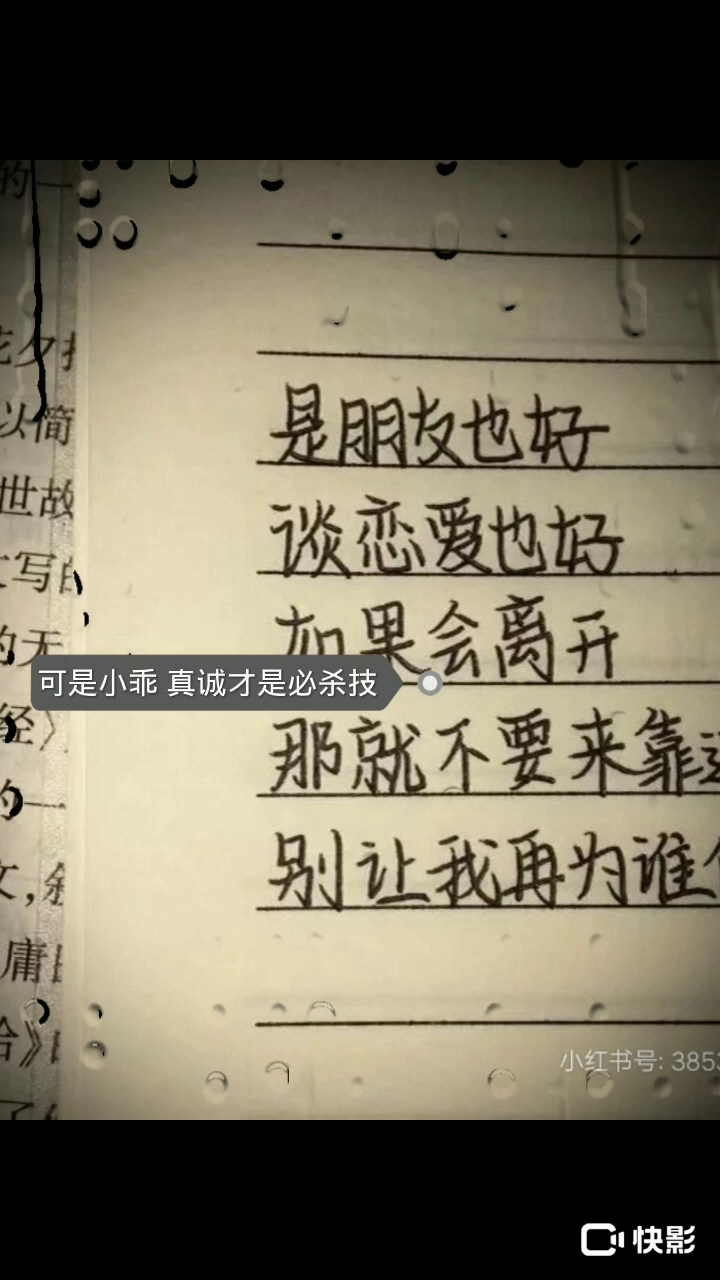 的一
花夕拾
以简
世故
写的
的无
经》
的一
文，叙
庸
》
是朋友也好
谈恋爱也好
如果会离开
可是小乖 真诚才是必杀技
那就不要来靠近
别让我再为谁
小红书号: 3853
快影